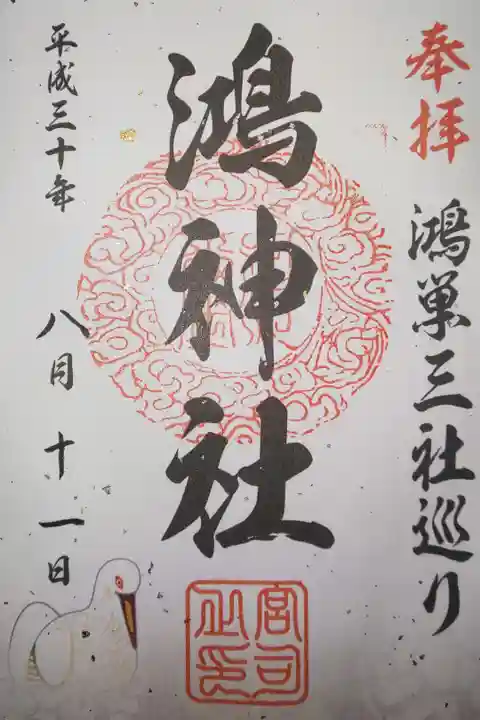 奉拝
鴻巣三社巡り
鴻神社
平成三十年
八月十一日
宮司之印